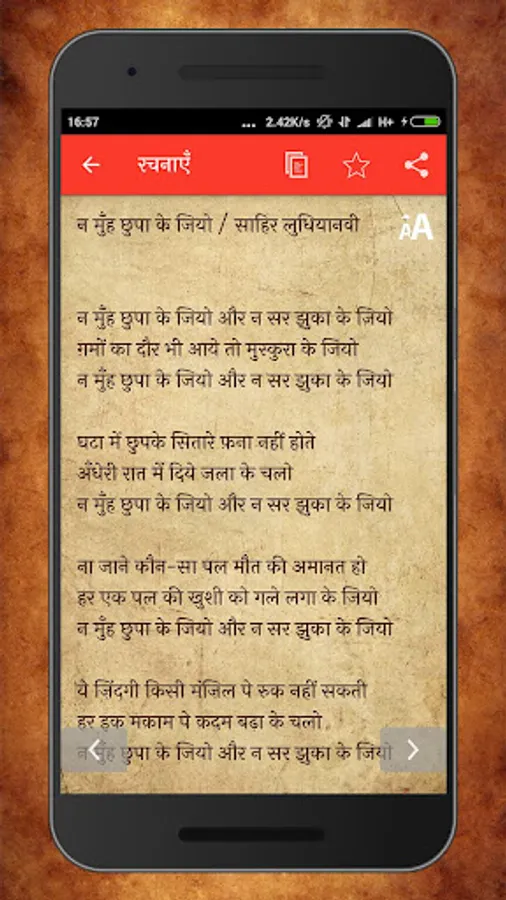 16:57 ... 2.42K/s H+
रचनाएँ
न मुँह छुपा के जियो / साहिर लुधियानवी
AA
न मुँह छुपा के जियो और न सर झुका के ज़ियो
ग़मों का दौर भी आये तो मुस्कुरा के जियो
न मुँह छुपा के जियो और न सर झुका के जियो
घटा में छुपके सितारे फ़ना नहीं होते
अँधेरी रात में दिये जला के चलो
न मुँह छुपा के जियो और न सर झुका के जियो
ना जाने कौन-सा पल मौत की अमानत हो
हर एक पल की खुशी को गले लगा के जियो
न मुँह छुपा के जियो और न सर झुका के जियो
ये ज़िंदगी किसी मंजिल पे रुक नहीं सकती
हर इक मक़ाम पे क़दम बढ़ा के चलो
न मुँह छुपा के जियो और न सर झुका के जियो